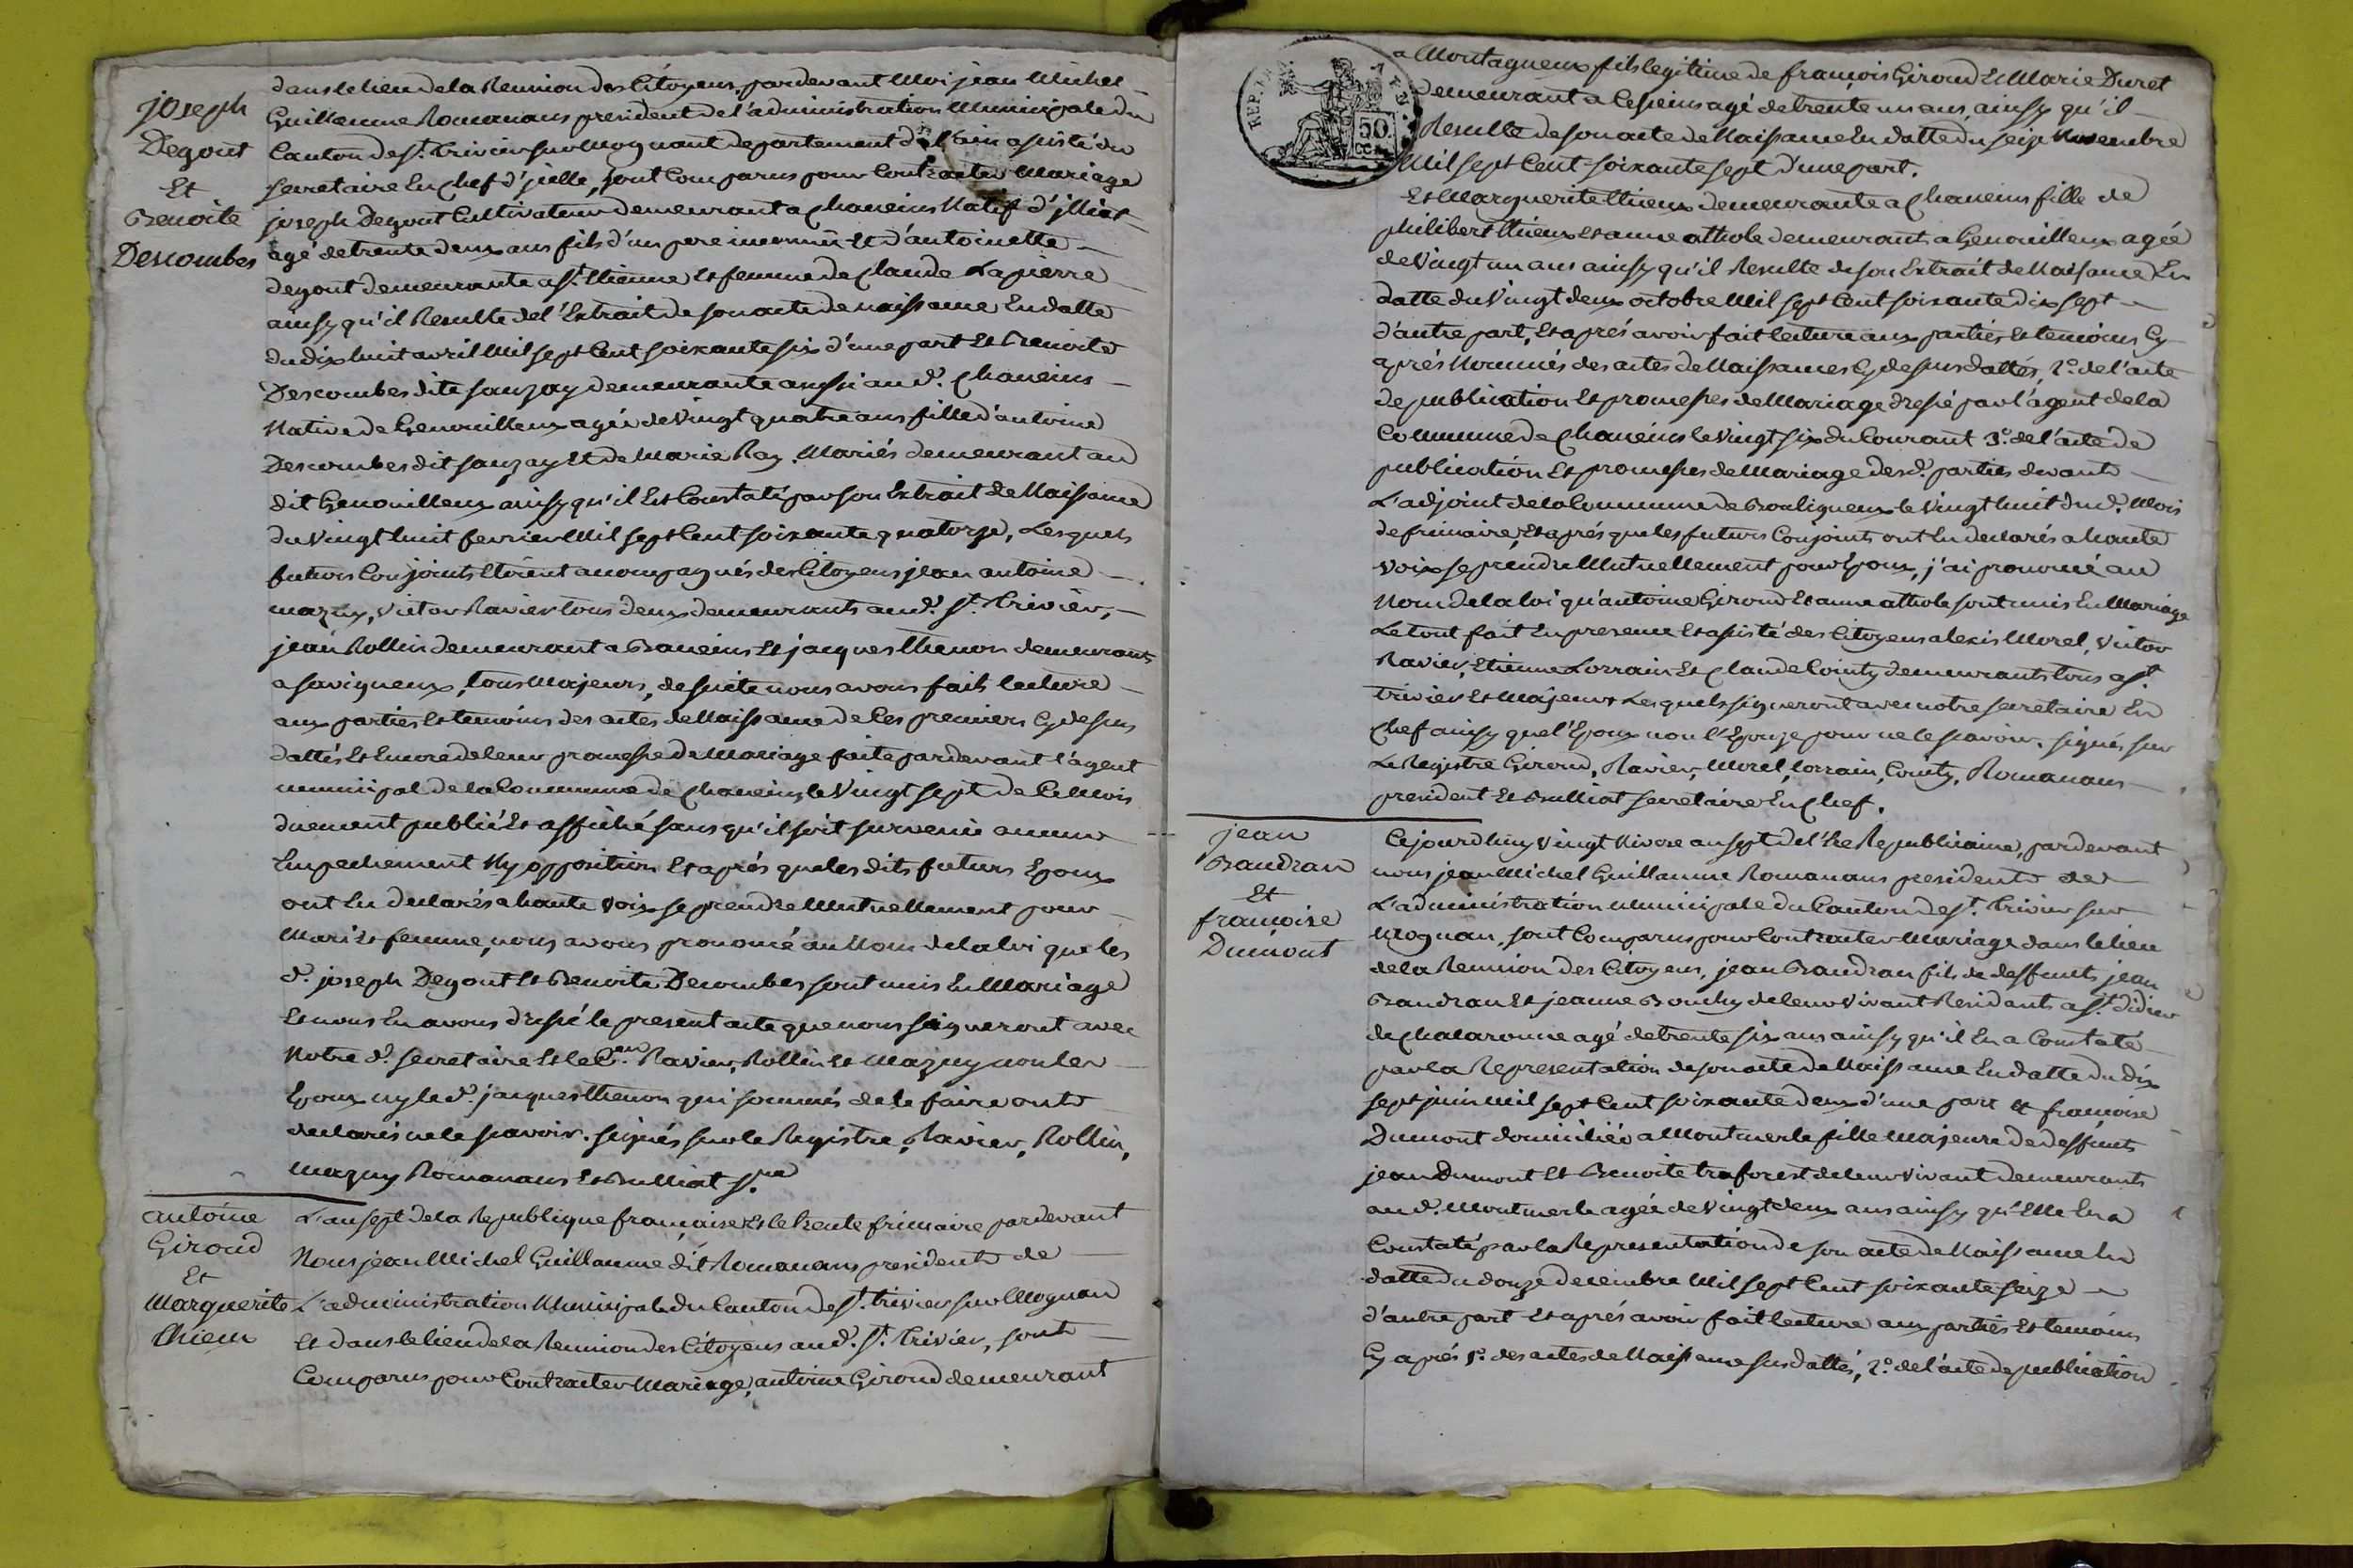 joseph
Degout
Et
Benoite
Descombes
dans le lieu de la Reunion des Citoyens, pardevant Moi jean Michel
Guillaume Romanans president de l'administration Municipale du
Canton de St. Trivier sur Mognant departement de l'ain assisté du
secretaire En Chef d'jcelle, sont Comparus pour Contracter Mariage
joseph Degout Cultivateur demeurant a Chaneins Natif d'jlliat
agé de trente deux ans fils d'un pere inconnu Et d'antoinette
degout demeurante a St. Etienne Et femme de Claude Lapierre
ainsy qu'il Resulte de l'Extrait de son acte de naissance En datte
du dix huit avril Mil sept Cent soixante six d'une part Et Benoite
Descombes dite sauzay demeurante aussi au d. Chaneins
Native de Genouilleux agée de Vingt quatre ans fille d'antoine
Descombes dit sauzay Et de Marie Ray. Mariés demeurant au
dit Genouilleux ainsy qu'il Est Constaté par son Extrait de Naissance
du Vingt huit fevrier Mil sept Cent soixante quatorze, Lesquels
futurs Conjoints Etoient accompagnés des Citoyens jean antoine
mazuy, Victor Ravier tous deux demeurants au d. St. Trivier,
jean Rollin demeurant a Baneins Et jacques Thenon demeurants
a savigneux, tous Majeurs, de suite nous avons fait lecture
aux parties Et temoins des actes de Naissance de Ces premiers Cy dessus
dattés Et Encore de leur promesse de Mariage faite pardevant l'agent
municipal de la Commune de Chaneins le Vingt sept de Ce Mois
duement publié Et affiché sans qu'il soit survenu aucun
Empechement Ny opposition Et aprés que les dits futurs Epoux
ont Eu declarés a haute Voix se prendre Mutuellement pour
Mari Et femme, nous avons prononcé au Nom de la loi que les
d. joseph Degout Et Benoite Decombes sont unis En Mariage
Et nous En avons dressé le present acte que nous signeront avec
Notre d. secretaire Et le C.en Ravier, Rollin Et Mazuy non les
Epoux ny le d. jacques Thenon qui sommés de le faire ont
declarés ne le scavoir. signés sur le Registre, Ravier, Rollin,
Mazuy Romanans Et Bulliat s.re
antoine
Giroud
Et
Marguerite
Thieux
L'an sept de la Republique française Et le trente frimaire pardevant
Nous jean Michel Guillaume dit Romanans president de
L'administration Municipale du Canton de St. Trivier sur Mognan
Et dans le lieu de la Reunion des Citoyens au d. St. Trivier, sont
Comparus pour Contracter Mariage, antoine Giroud demeurant
50
a Montagneux fils legitime de françois Giroud Et Marie Duret
demeurant a Cesseins agé de trente un ans, ainsy qu'il
Resulte de son acte de Naissance En datte du seize Novembre
Mil sept Cent soixante sept d'une part.
Et Marguerite Thieux demeurante a Chaneins fille de
philibert Thieux Et anne athole demeurants a Genouilleux agée
de Vingt un ans ainsy qu'il Resulte de son Extrait de Naissance En
datte du Vingt deux octobre Mil sept Cent soixante dix sept
d'autre part, Et aprés avoir fait lecture aux parties Et temoins Cy
aprés Nommés des actes de Naissances Cy dessus dattés, 2.o de l'acte
de publication Et promesses de Mariage dressé par l'agent de la
Commune de Chaneins le Vingt six du Courant 3.o de l'acte de
publication Et promesses de Mariage des d. parties devant
L'adjoint de la Commune de Bouligneux le Vingt huit du d. Mois
de frimaire, Et aprés que les futurs Conjoints ont Eu declarés a haute
Voix se prendre Mutuellement pour Epoux, j'ai prononcé au
Nom de la loi qu'antoine Giroud Et anne athole sont unis En Mariage
Le tout fait En presence Et assisté des Citoyens alexis Morel, Victor
Ravier, Etienne Lorrain Et Claude Cointy demeurants tous a St.
trivier Et Majeurs Lesquels signeront avec notre secretaire En
Chef ainsy que l'Epoux non l'Epouze pour ne le scavoir. signés sur
Le Registre Giroud, Ravier, Morel, lorrain, Cointy, Romanans
president Et Bulliat secretaire En Chef.
jean
Baudran
Et
françoise
Dumont
Cejourdhuy Vingt Nivose an sept de l'Ere Republicaine, pardevant
nous jean Michel Guillaume Romanans president de
L'administration Municipale du Canton de St. Trivier sur
Mognan, sont Comparus pour Contracter Mariage dans le lieu
de la Reunion des Citoyens, jean Baudran fils de deffunts jean
Baudran Et jeanne Bouchy de leur Vivant Residants a St. didier
de Chalaronne agé de trente six ans ainsy qu'il En a Constaté
par la Representation de son acte de Naissance En datte du dix
sept juin Mil sept Cent soixante deux d'une part Et françoise
Dumont domiciliée a Montmerle fille Majeure de deffunts
jean Dumont Et Benoite traforest de leur Vivant demeurants
au d. Montmerle agée de Vingt deux ans ainsy qu'Elle En a
Constaté par la Representation de son acte de Naissance En
datte du douze decembre Mil sept Cent soixante seize
d'autre part Et aprés avoir fait lecture aux parties Et temoins
Cy aprés 1.o des actes de Naissance sus dattés, 2.o de l'acte de publication